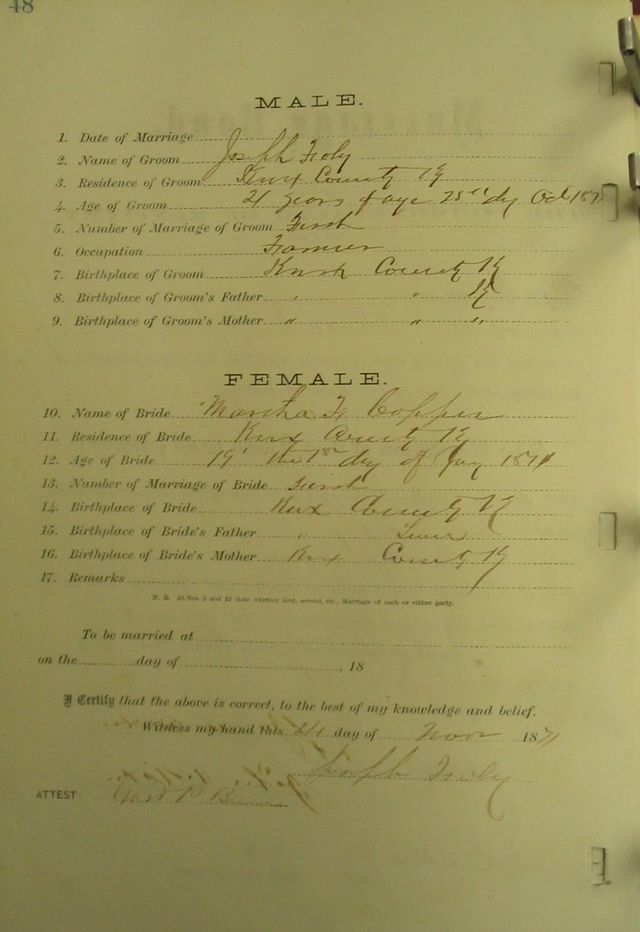 48
MALE.
1. Date of Marriage
2. Name of Groom Joseph
3. Residence of Groom Knox County Ky
4. Age of Groom 21 years of age 25th dy Oct 187
5. Number of Marriage of Groom First
6. Occupation Farmer
7. Birthplace of Groom Knox County Ky
8. Birthplace of Groom's Father " " Ky
9. Birthplace of Groom's Mother " " "
FEMALE.
10. Name of Bride Martha
11. Residence of Bride Knox County Ky
12. Age of Bride 19 the 1st day of 187
13. Number of Marriage of Bride First
14. Birthplace of Bride Knox County Ky
15. Birthplace of Bride's Father "
16. Birthplace of Bride's Mother Knox County Ky
17. Remarks
N. B. At Nos. 5 and 13 state whether first, second, etc., Marriage of each or either party.
To be married at
on the day of , 18
I Certify that the above is correct, to the best of my knowledge and belief.
Witness my hand this day of Novr 1871
Joseph
ATTEST